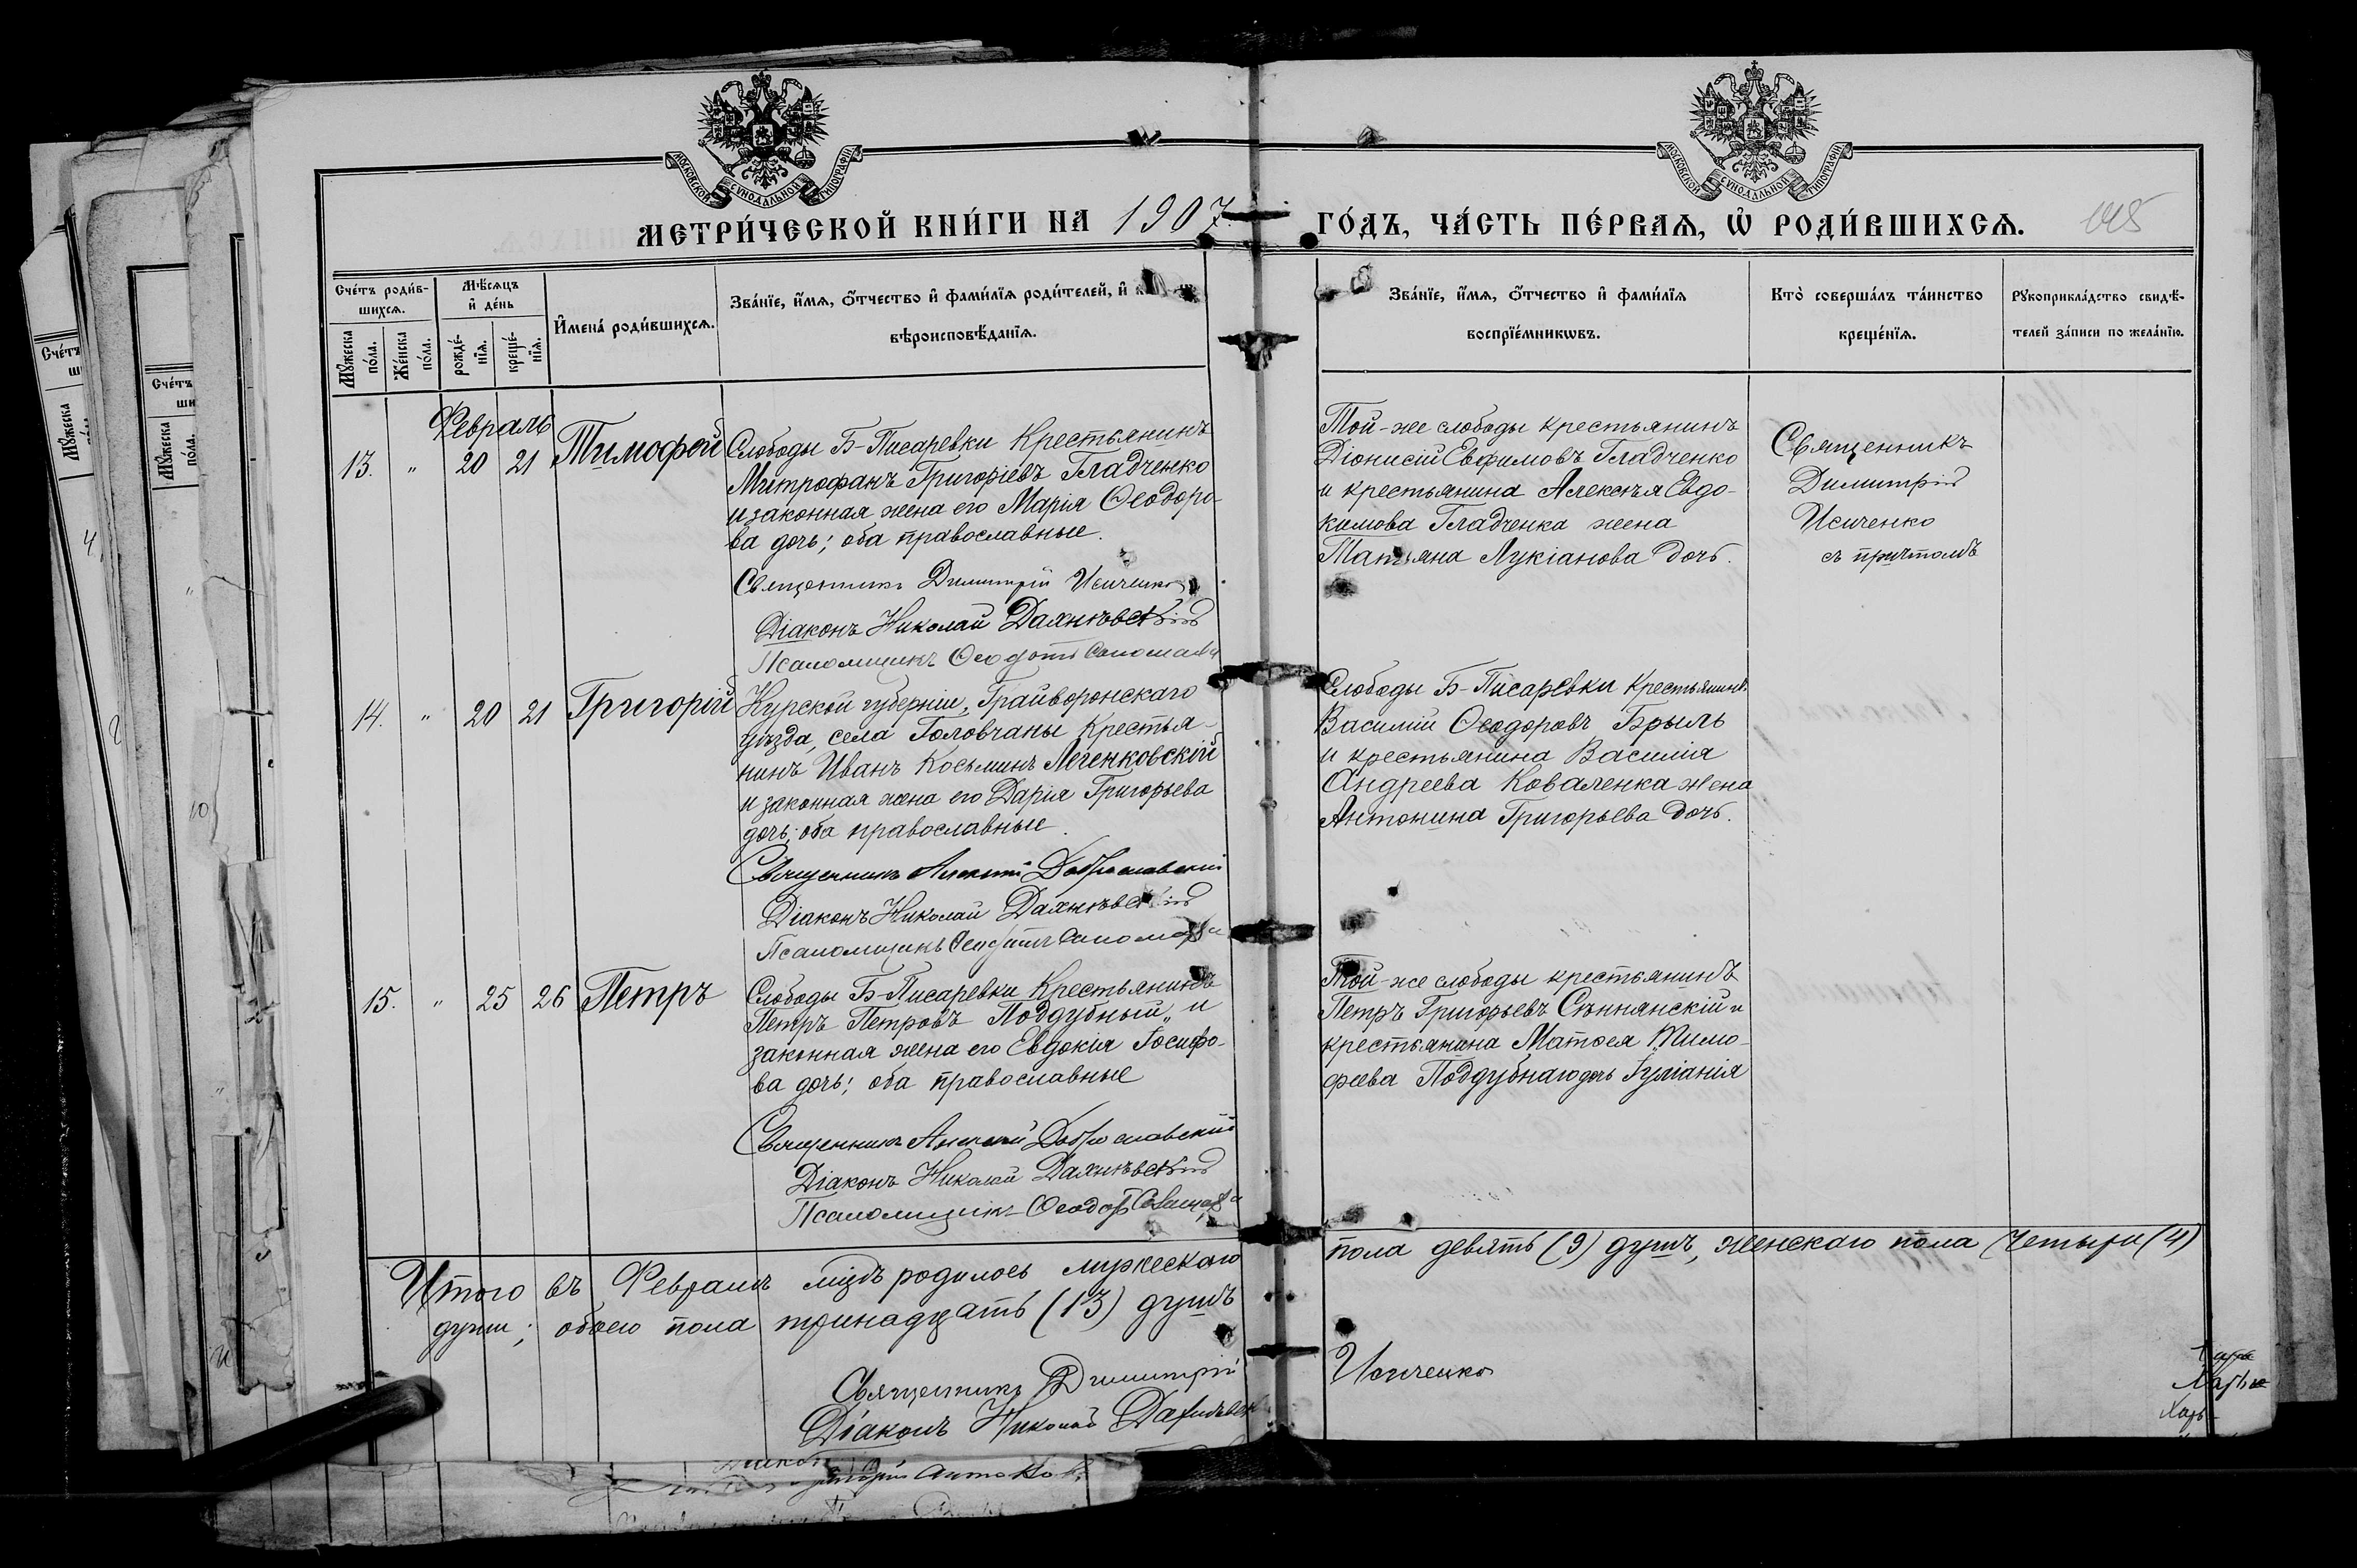 МОСКОВСКОЙ СУНОДАЛЬНОЙ ТИПОГРАФІИ
МОСКОВСКОЙ СУНОДАЛЬНОЙ ТИПОГРАФІИ
МЕТРИ́ЧЕСКОЙ КНИ́ГИ НА 1907
ГО́ДЪ, ЧА́СТЬ ПЕ́РВАѦ, Ѡ҆ РОДИ́ВШИХСѦ.
Сче́тъ роди́в-
шихсѧ.
Мꙋ́жеска
по́ла.
Же́нска
по́ла.
Мѣ́сѧцъ
и҆ де́нь
рожде́-
нїѧ.
креще́-
нїѧ.
И҆мена̀ роди́вшихсѧ.
Зва́нїе, и҆́мѧ, ѻ҆́тчество и҆ фами́лїѧ роди́телей, и҆
вѣроисповѣ́данїѧ.
Зва́нїе, и҆́мѧ, ѻ҆́тчество и҆ фами́лїѧ
воспрїе́мникѡвъ.
Кто̀ соверша́лъ та́инство
креще́нїѧ.
Рꙋкоприкла́дство свидѣ́-
телей за́писи по жела́нїю.
Февраль
13. " 20 21 Тимофей
Слободы Б-Писаревки Крестьянинъ
Митрофанъ Григоріевъ Гладченко
и законная жена его Марія Ѳеодоро-
ва дочь; оба православные.
Священникъ Димитрій Исиченко
Діаконъ Николай
Псаломщикъ
Той-же слободы крестьянинъ
Діонисій Евфимовъ Гладченко
и крестьянина Алексѣя Евдо-
кимова Гладченка жена
Татьяна Лукіанова дочь.
Священникъ
Димитрій
Исиченко
съ причтомъ
14. " 20 21 Григорій
Курской губерніи, Грайворонскаго
уѣзда, села Головчаны Крестья-
нинъ Иванъ Косьминъ Легенковскій
и законная жена его Дарія Григорьева
дочь; оба православные.
Священникъ Алексій Доброславскій
Діаконъ Николай
Псаломщикъ
Слободы Б-Писаревки Крестьянинъ
Василій Ѳеодоровъ Брыль
и крестьянина Василія
Андреева Коваленка жена
Антонина Григорьева дочь.
15. " 25 26 Петръ
Слободы Б-Писаревки Крестьянинъ
Петръ Петровъ Поддубный, и
законная жена его Евдокія Іосифо-
ва дочь; оба православные
Священникъ Алексій Доброславскій
Діаконъ Николай
Псаломщикъ
Той-же слободы крестьянинъ
Петръ Григорьевъ Сѣннянскій и
крестьянина Матѳея Тимо-
феева Поддубнаго дочь Іуліанія
Итого въ Февралѣ мцѣ родилось мужескаго
пола девять (9) душъ, женскаго пола четыре (4)
души; обоего пола тринадцать (13) душъ
Священникъ Димитрій
Исиченко
Діаконъ Николай